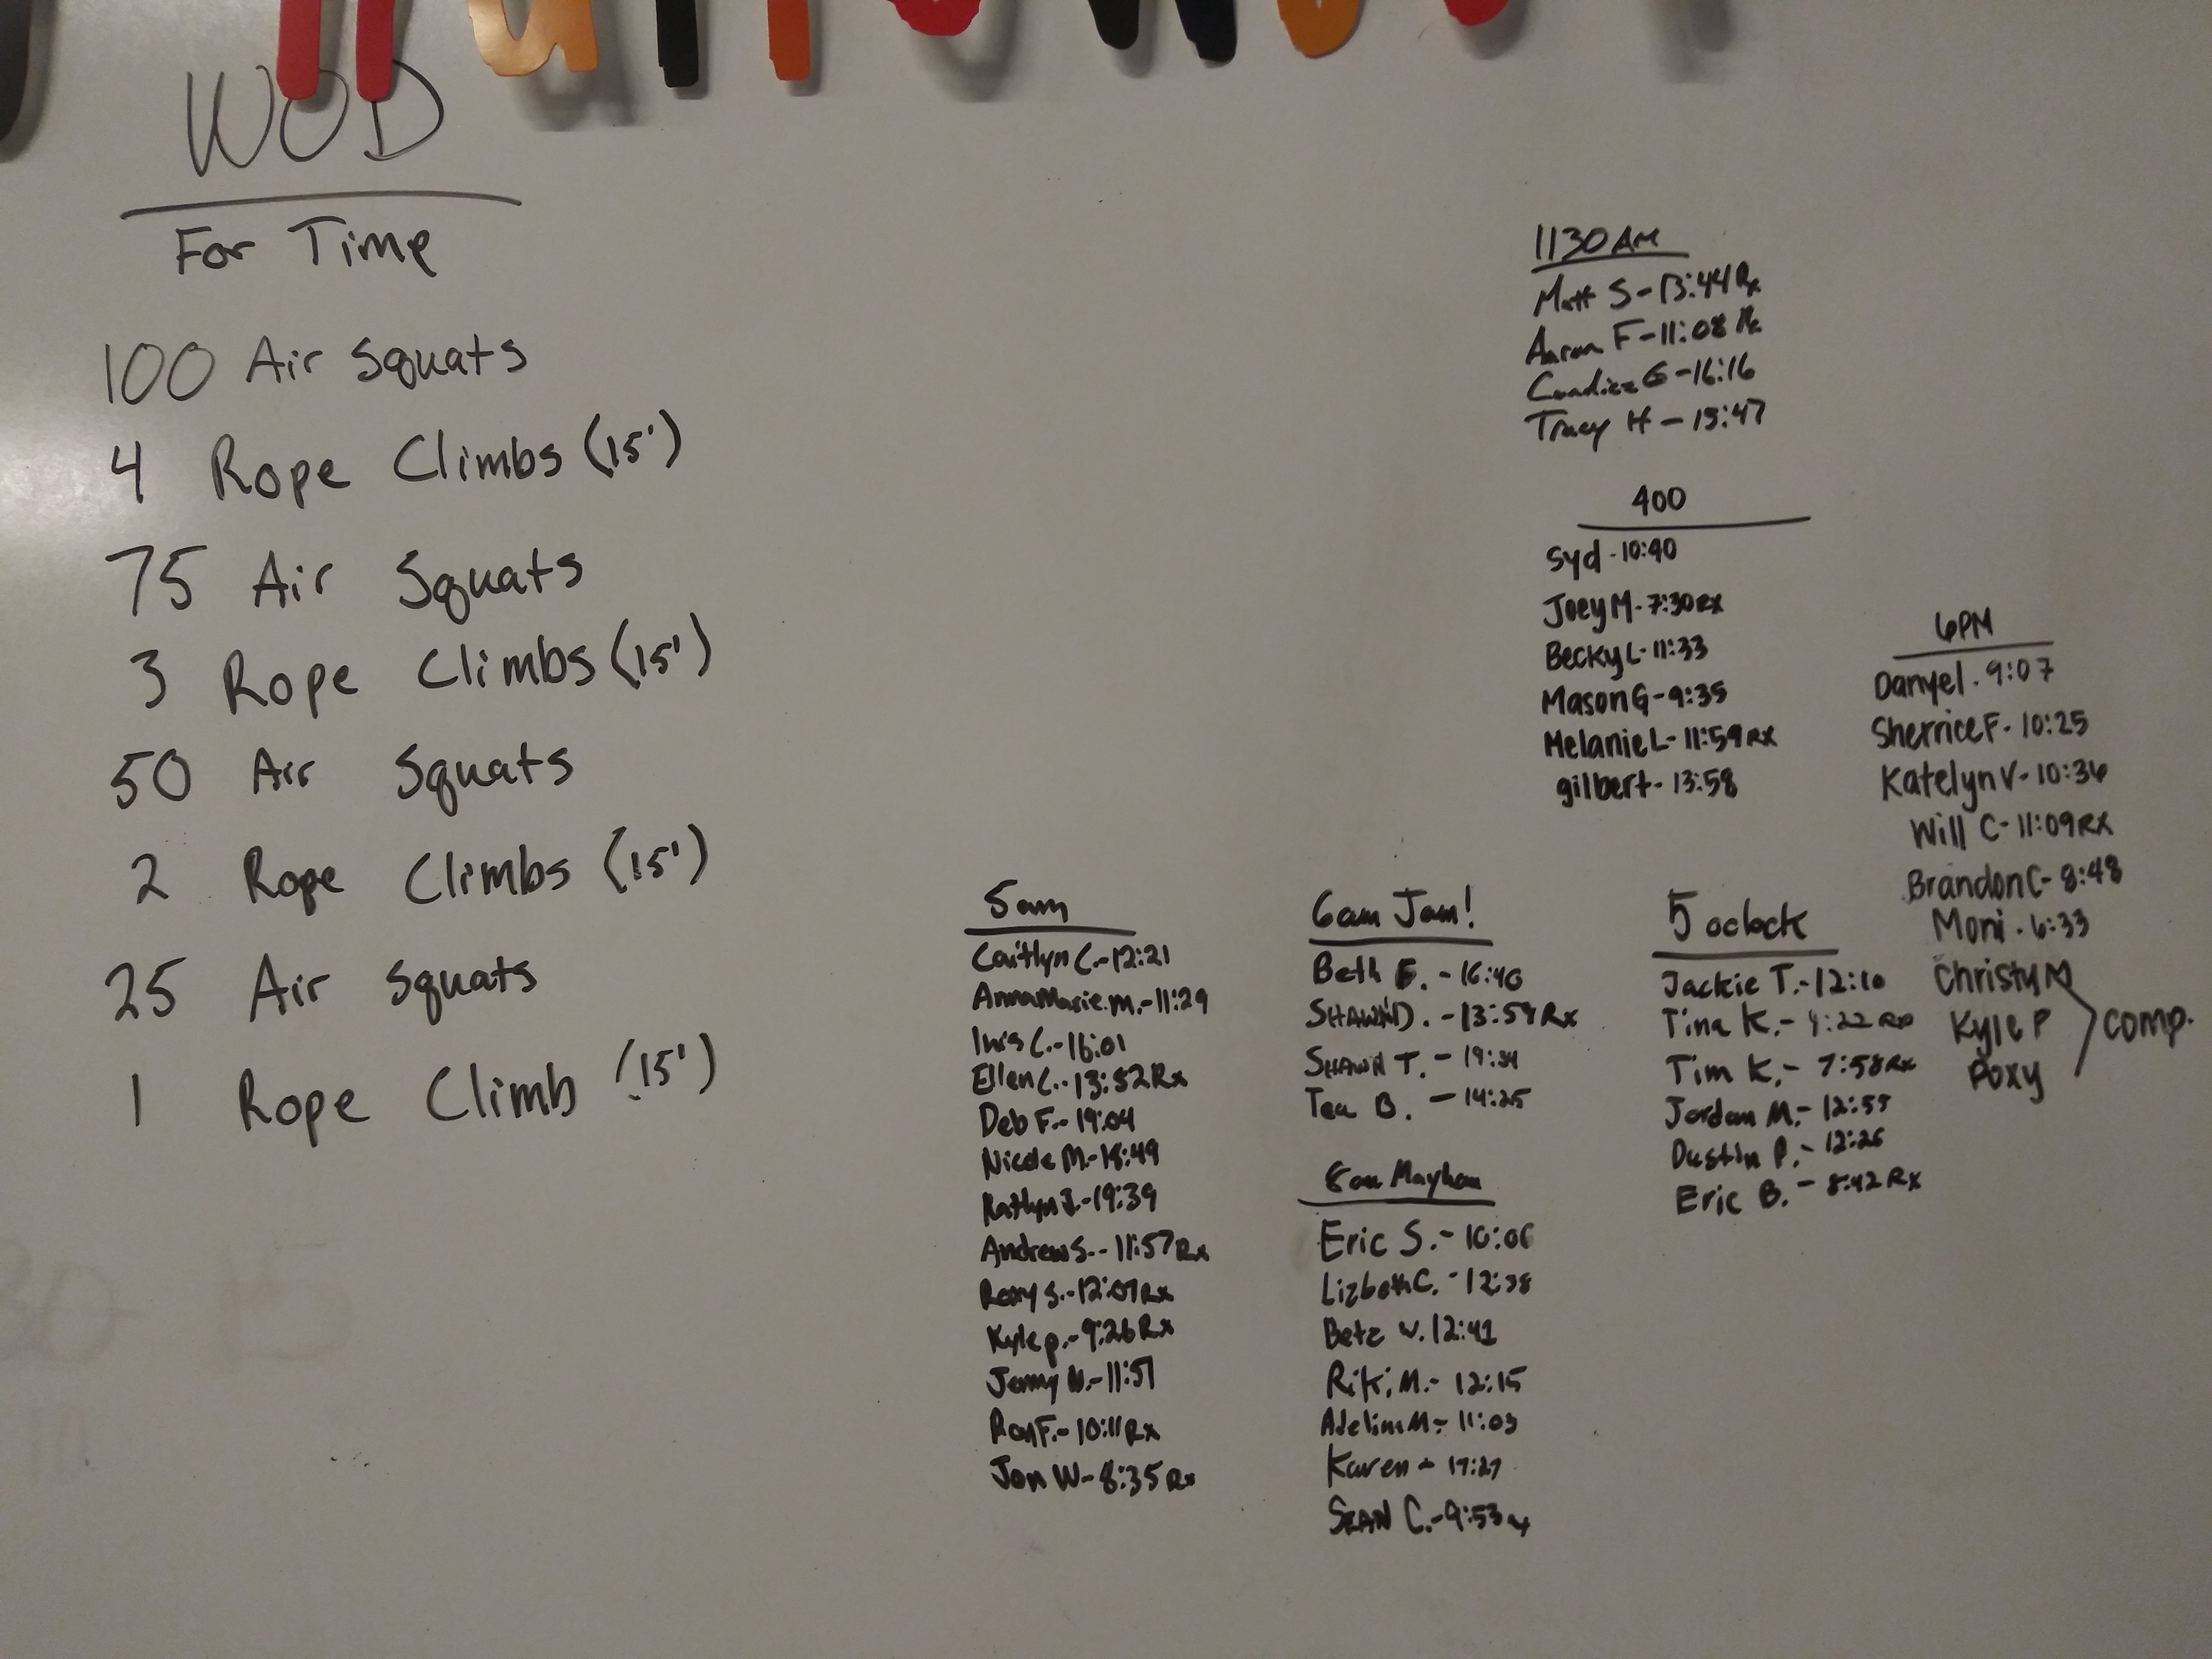 WOD
For Time
100 Air Squats
4 Rope Climbs (15')
75 Air Squats
3 Rope Climbs (15')
50 Air Squats
2 Rope Climbs (15')
25 Air Squats
1 Rope Climb (15')
5am
Caitlyn C.-12:21
AnnaMarie.m.-11:29
C.-16:01
Ellen C.-13:52Rx
Deb F.-19:04
Nicole M.-18:49
Katlyn J.-19:39
Andrew S.-11:57Rx
S.-12:07Rx
Kyle p.-9:26Rx
Jenny N.-11:51
Ron F.-10:11Rx
Jon W-8:35Rx
6am Jam!
Beth E.-16:40
SHAWN D.-13:59Rx
SHAWN T.-19:34
Tea B.-14:25
8am
Eric S.-10:06
Lizbeth C.-12:38
Betz V. 12:41
Riki M.-12:15
Adelin M-11:03
Karen-17:27
SEAN C.-9:53
1130 AM
Matt S-13:44Rx
Aaron F-11:08 Rx
Candice G-16:16
Tracy H-13:47
400
Syd-10:40
Joey M-7:30RX
Becky L-11:33
Mason G-9:35
Melanie L-11:59RX
gilbert-13:58
5 oclock
Jackie T.-12:10
Tina K.-9:22 Rx
Tim K.-7:58Rx
Jordan M.-12:59
Dustin P.-12:26
Eric B.-8:42Rx
6PM
Danyel. 9:07
Sherrice F-10:25
Katelyn V-10:36
Will C-11:09RX
Brandon C-8:48
Moni.6:33
Christy M
Kyle P
Poxy
comp.